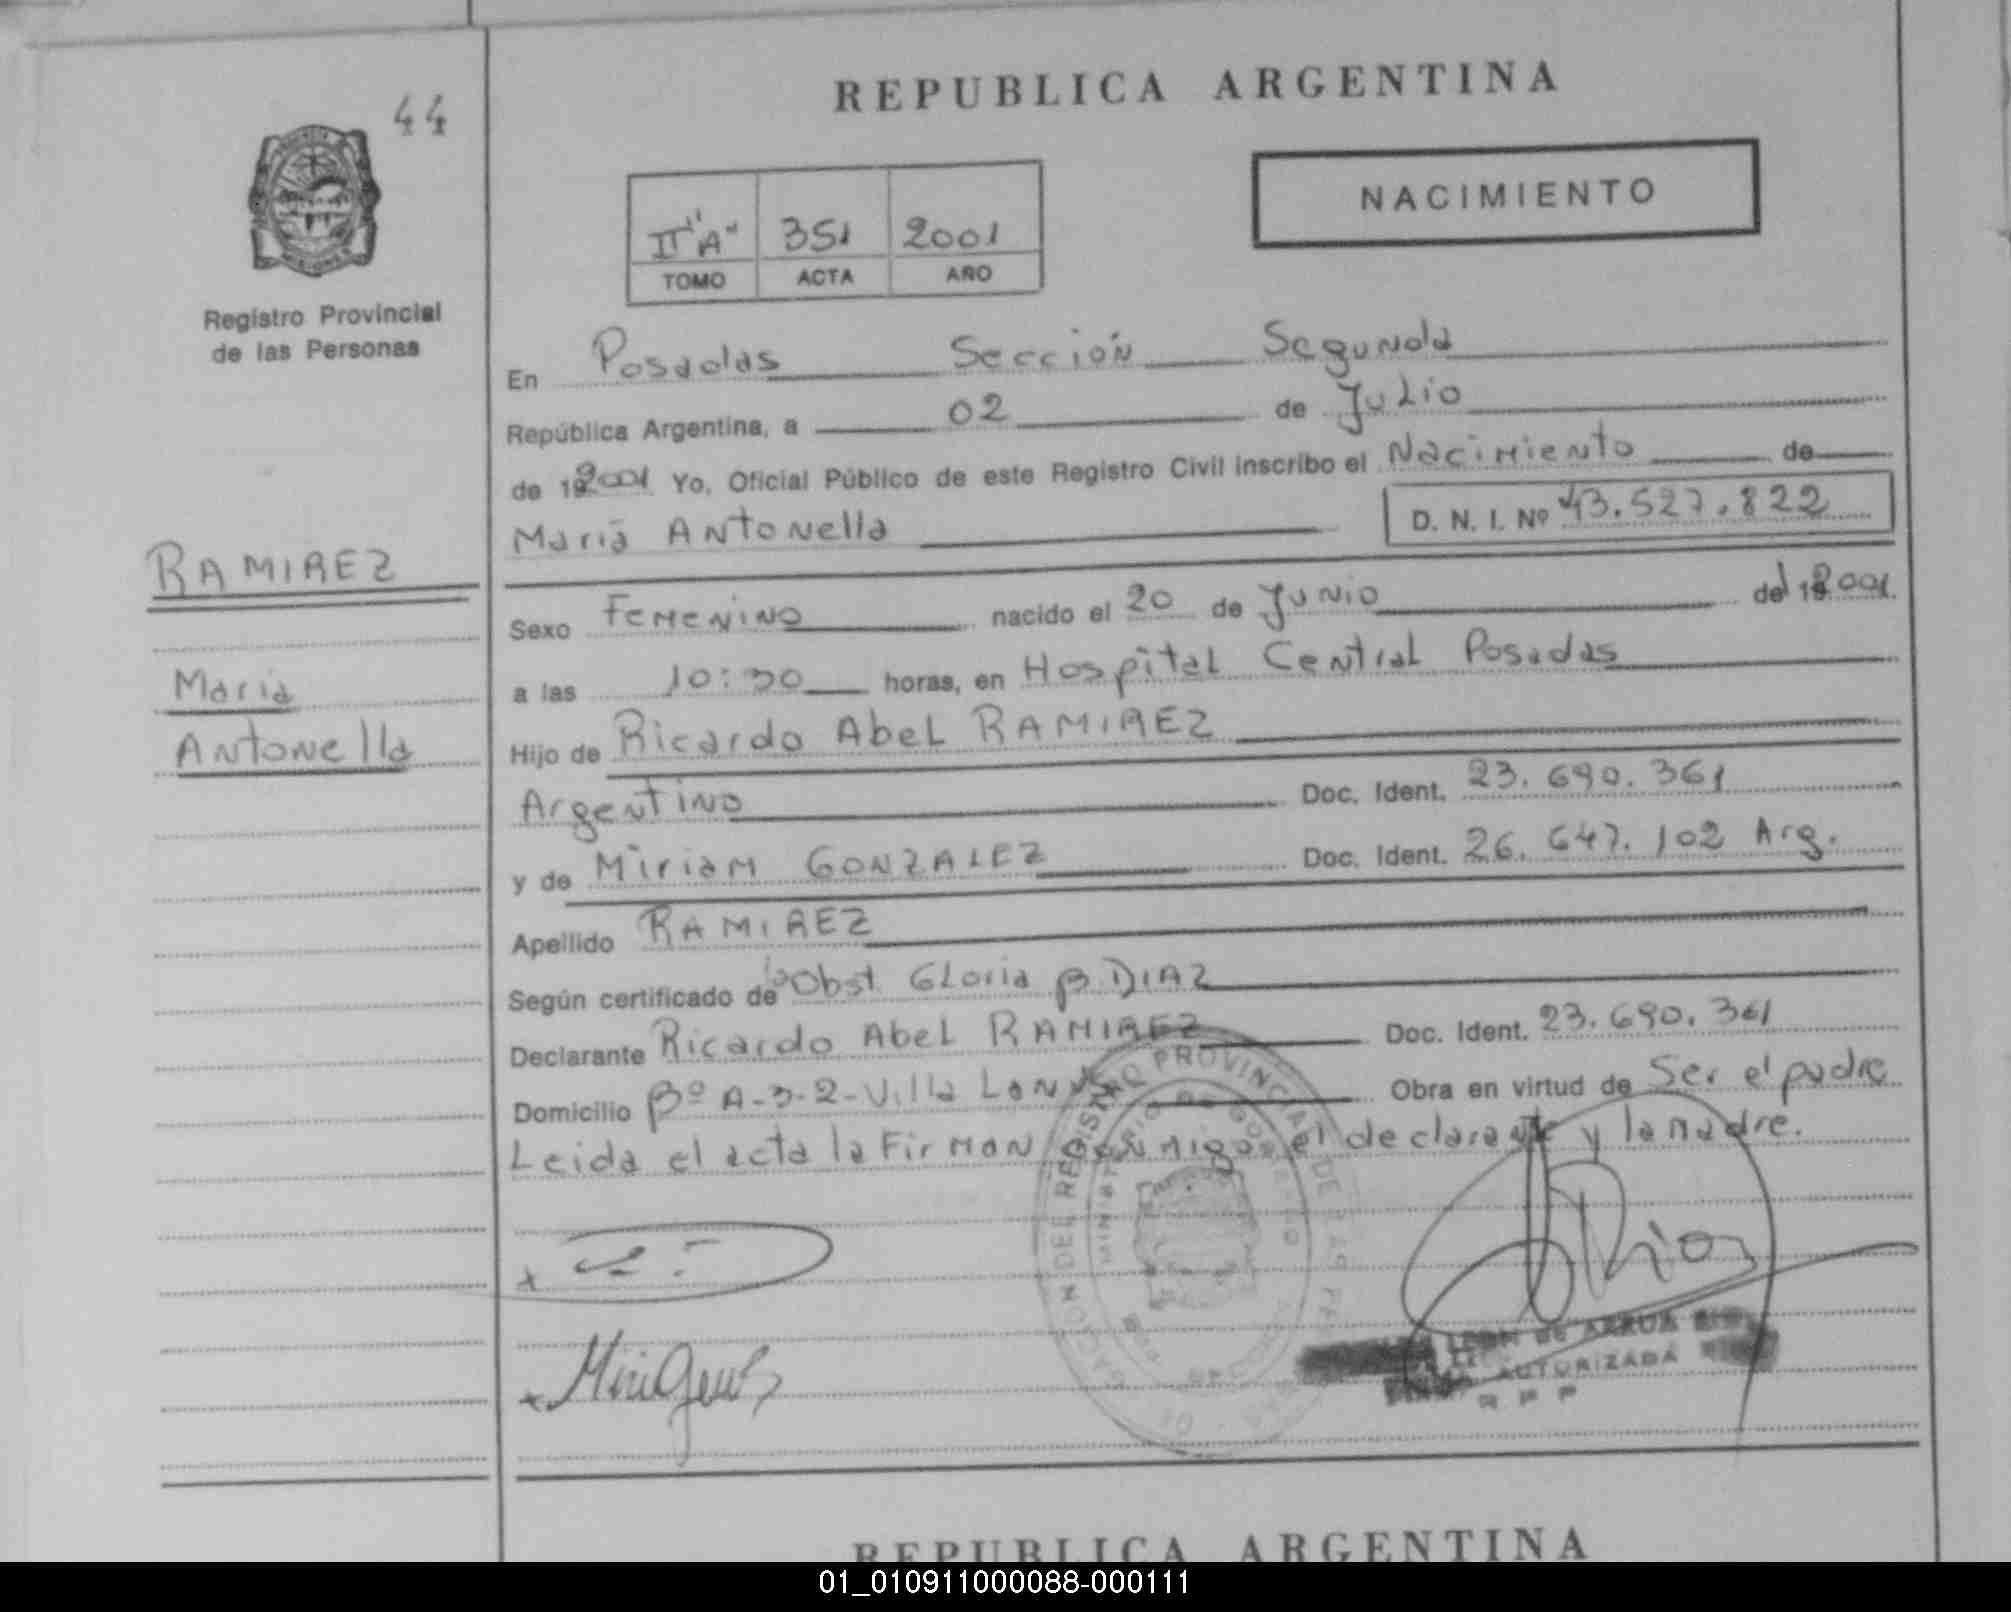 REPUBLICA ARGENTINA
44
NACIMIENTO
II "A" 351 2001
TOMO ACTA AÑO
Registro Provincial
de las Personas
En Posadas Sección Segunda
República Argentina, a 02 de Julio
de 2001 Yo, Oficial Público de este Registro Civil inscribo el Nacimiento de
María Antonella D. N. I. Nº 43.527.822
RAMIREZ
Sexo Femenino nacido el 20 de Junio del 2001
Maria
a las 10:30 horas, en Hospital Central Posadas
Antonella
Hijo de Ricardo Abel RAMIREZ
Argentino Doc. Ident. 23.690.361
y de Miriam GONZALEZ Doc. Ident. 26.647.102 Arg.
Apellido RAMIREZ
Según certificado de Obst. Gloria B. DIAZ
Declarante Ricardo Abel RAMIREZ Doc. Ident. 23.690.361
Domicilio Bº A-3-2-Villa Lanus Obra en virtud de Ser el padre
Leida el acta la Firman conmigo el declarante y la madre.
DEL REGISTRO PROVINCIAL DE
MINISTERIO DE GOBIERNO
Rios
LEON de ARRUA
AUTORIZADA
R P P
REPUBLICA ARGENTINA
01_010911000088-000111